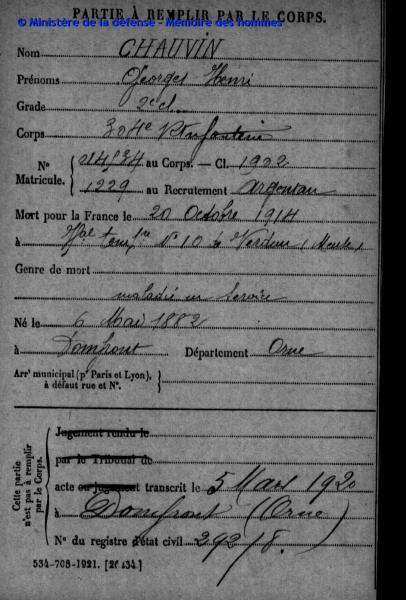 PARTIE À REMPLIR PAR LE CORPS.
© Ministère de la défense - Mémoire des hommes
Nom CHAUVIN
Prénoms Georges Henri
Grade 2e cl.
Corps 304e d'Infanterie
N° Matricule. { 14534 au Corps. — Cl. 1902
1229 au Recrutement Argentan
Mort pour la France le 20 Octobre 1914
à Hal temre N° 10 de Verdun (Meuse)
Genre de mort
maladie en service
Né le 6 Mai 1882
à Domfront Département Orne
Arrt municipal (pr Paris et Lyon), à défaut rue et N°. }
Cette partie n'est pas à remplir par le Corps.
Jugement rendu le
par le Tribunal de
acte ou jugement transcrit le 5 Mars 1920
à Domfront (Orne)
N° du registre d'état civil 292/8.
534-708-1921. [26434.]